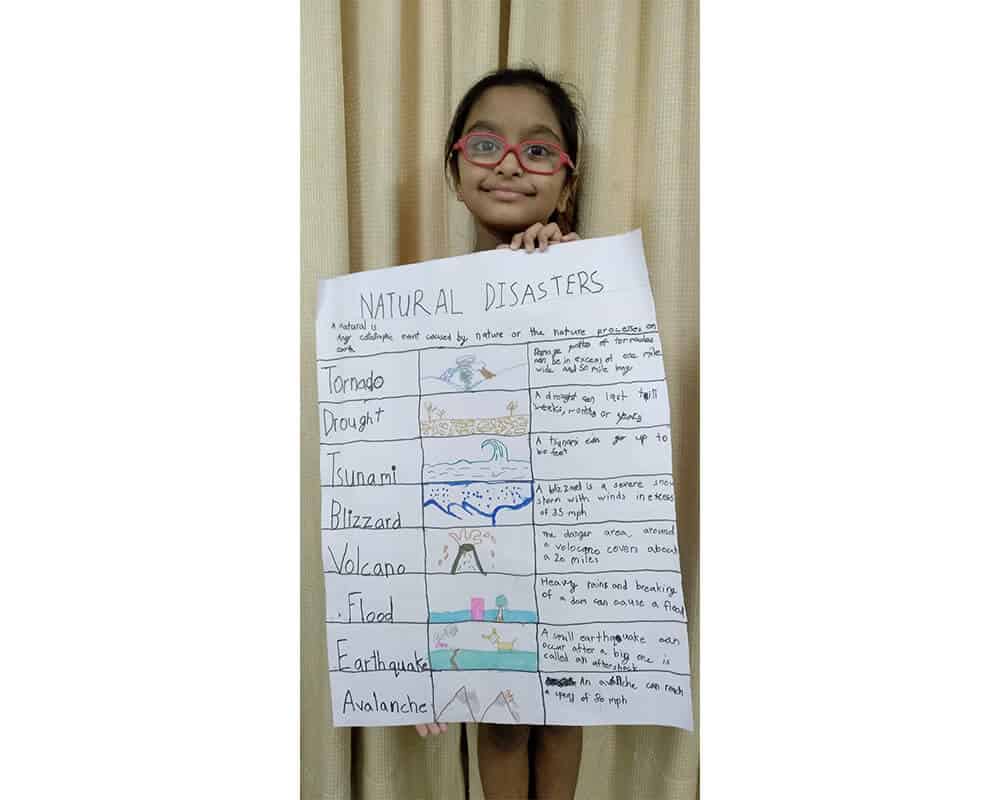 NATURAL DISASTERS
A natural is
Any catastrophic event caused by nature or the nature processes on
earth
Tornado
Damage paths of tornados
can be in excess of one mile
wide and 50 mile long
Drought
A drought can last till
weeks, months or years
Tsunami
A tsunami can go up to
feet
Blizzard
A blizzard is a severe snow
storm with winds in excess
of 35 mph
Volcano
The danger area, around
a volocano covers about
a 20 miles
Flood
Heavy rains and breaking
of a dam can cause a flood
Earthquake
A small earthquake can
occur after a big one is
called an aftershock
Avalanche
An can reach
a of 80 mph